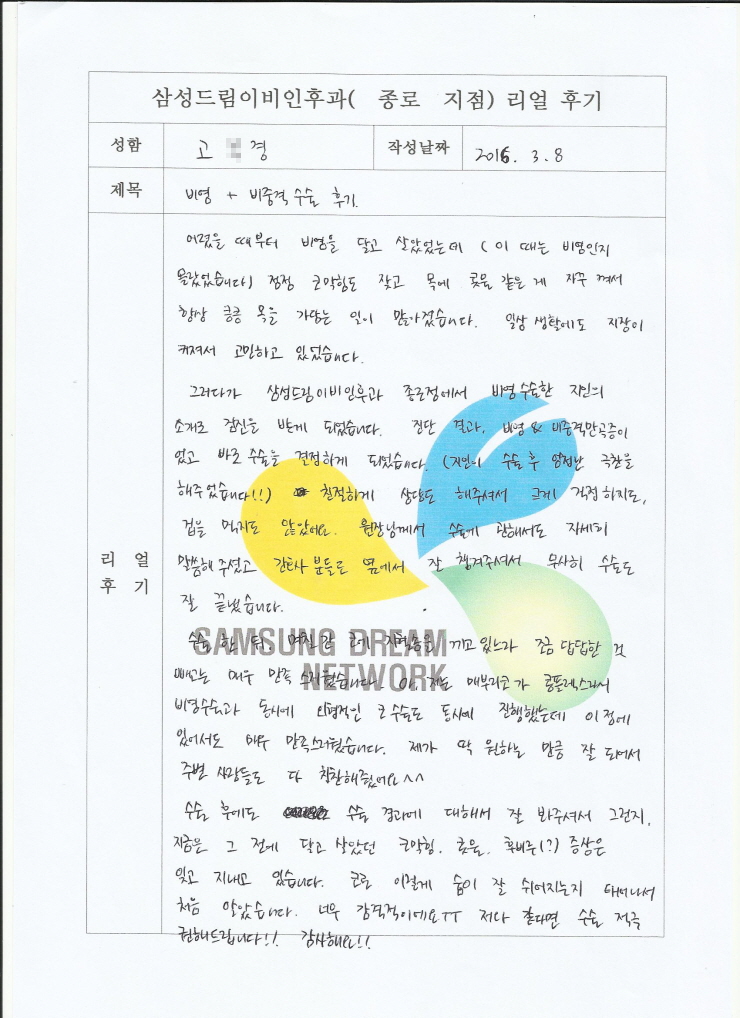 삼성드림이비인후과( 종로 지점) 리얼 후기
성함 고 경 작성날짜 2016. 3. 8
제목 비염 + 비중격 수술 후기.
리 얼
후 기
어렸을 때부터 비염을 달고 살았었는데 (이 때는 비염인지
몰랐었습니다) 점점 코막힘도 잦고 목에 콧물 같은 게 자꾸 껴서
항상 킁킁 목을 가다듬는 일이 많아졌습니다. 일상 생활에도 지장이
커져서 고민하고 있었습니다.
그러다가 삼성드림이비인후과 종로점에서 비염수술한 지인의
소개로 검진을 받게 되었습니다. 진단 결과, 비염 & 비중격만곡증이
었고 바로 수술을 결정하게 되었습니다. (지인이 수술 후 엄청난 극찬을
해주었습니다!!) 친절하게 상담도 해주셔서 크게 걱정하지도,
겁을 먹지도 않았어요. 원장님께서 수술에 관해서도 자세히
말씀해 주셨고 간호사 분들도 옆에서 잘 챙겨주셔서 무사히 수술도
잘 끝냈습니다.
수술 한 뒤, 며칠간 코에 지혈솜을 끼고 있느라 조금 답답한 것
빼고는 매우 만족스러웠습니다. 아, 저는 매부리코가 콤플렉스라서
비염수술과 동시에 외형적인 코 수술도 동시에 진행했는데 이 점에
있어서도 매우 만족스러웠습니다. 제가 딱 원하는 만큼 잘 되어서
주변 사람들도 다 칭찬해줬어요^^
수술 후에도 수술 경과에 대해서 잘 봐주셔서 그런지,
지금은 그 전에 달고 살았던 코막힘, 콧물, 후비루(?) 증상은
잊고 지내고 있습니다. 코로 이렇게 숨이 잘 쉬어지는지 태어나서
처음 알았습니다. 너무 감격적이에요ㅠㅠ 저다 수술 적극
권해드립니다!! 감사해요!!
SAMSUNG DREAM
NETWORK